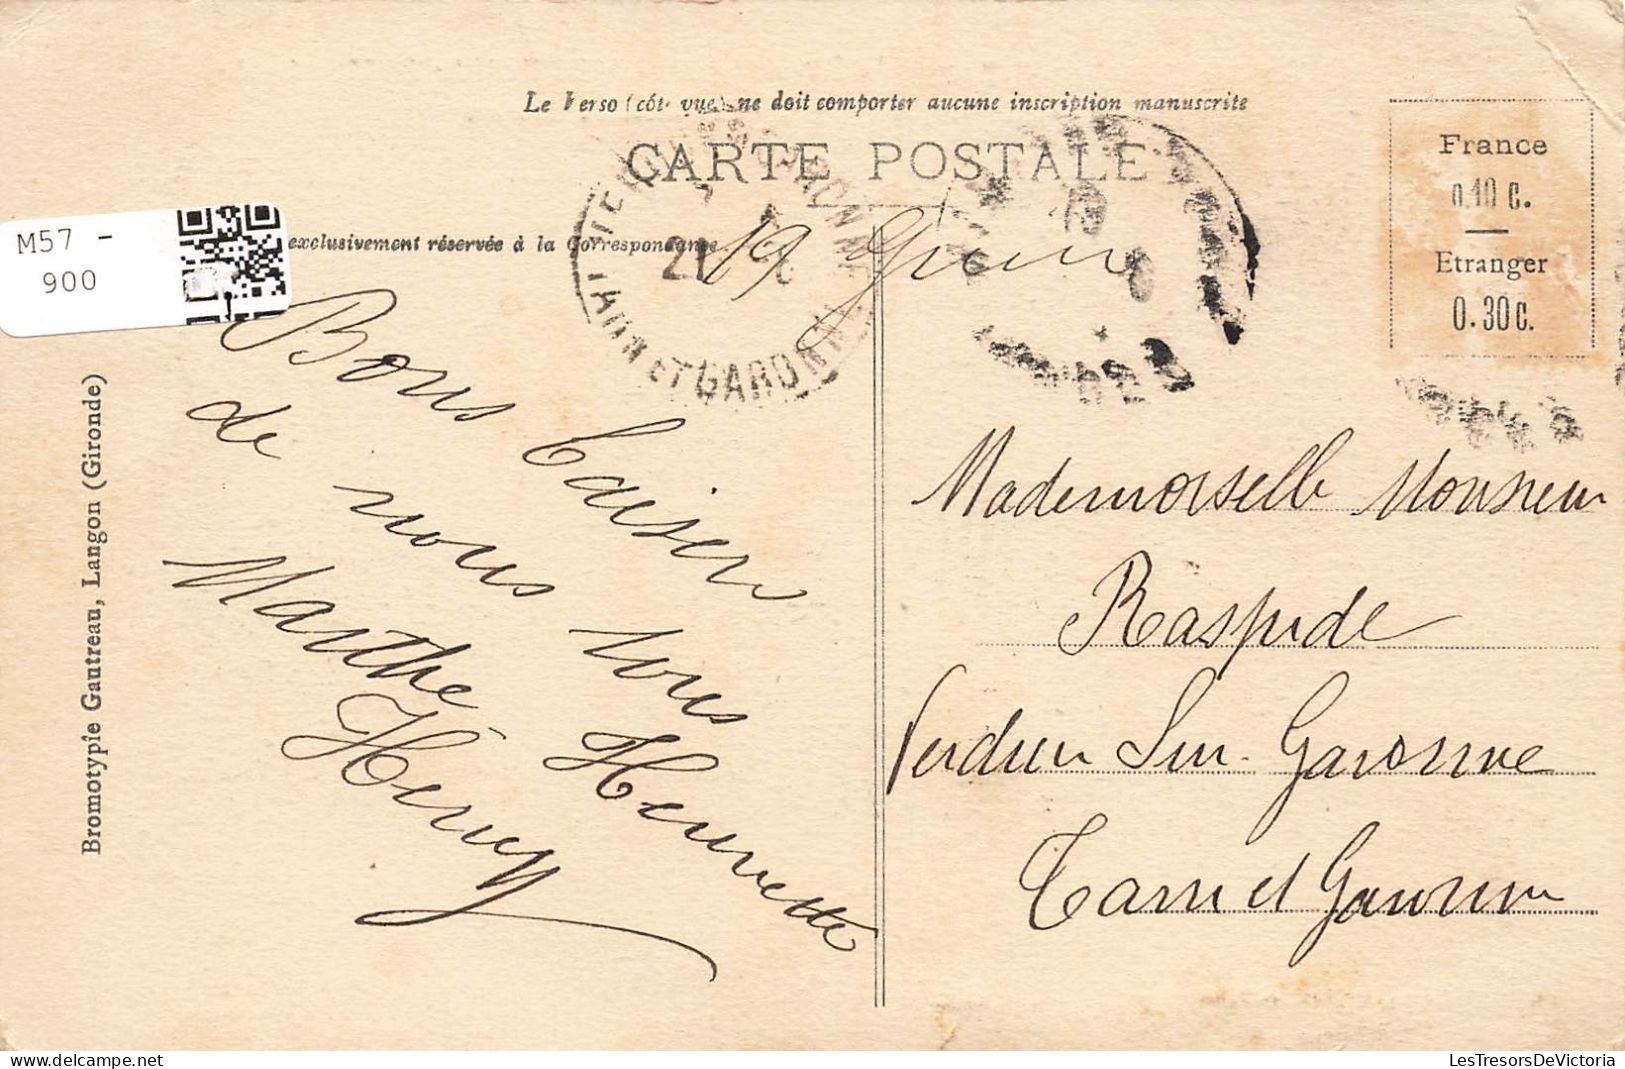 Le Verso (côté vue) ne doit comporter aucune inscription manuscrite
CARTE POSTALE
exclusivement réservée à la Correspondance
M57 -
900
France
0.10 c.
Etranger
0.30 c.
21
TARN ET GARONNE
19
Bons baisers
de nous tous
Marthe Henriette
Henry
Mademoiselle Monsieur
Raspide
Verdun Sur Garonne
Tarn et Garonne
Bromotypie Gautreau, Langon (Gironde)
LesTresorsDeVictoria